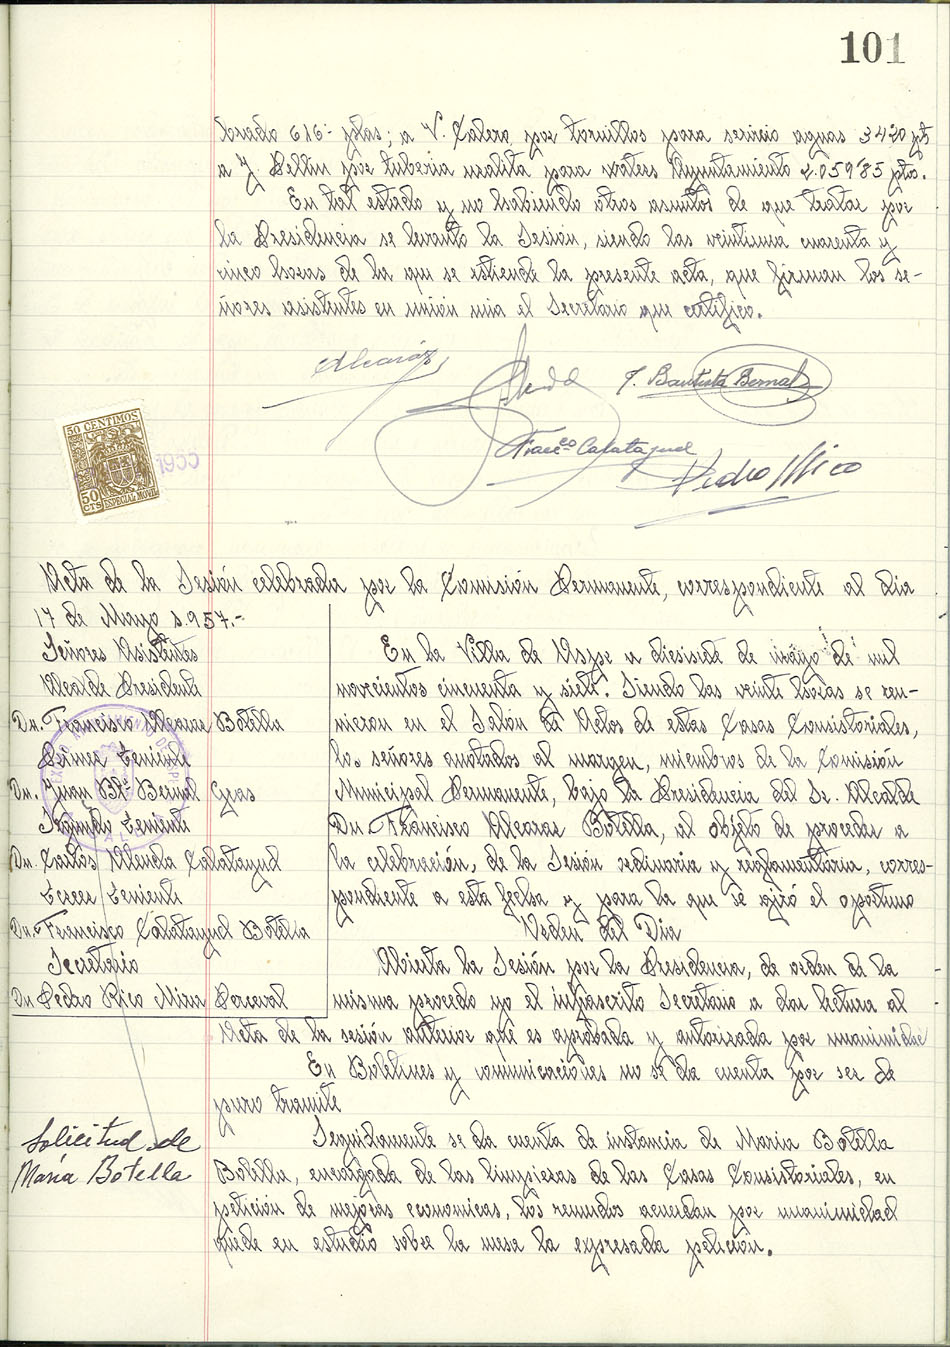 101
brado 616- ptas; a V. Calero por tornillos para servicio aguas 3420 pts
a J. Bellin por tuberia uralita para waters Ayuntamiento 2.059'85 ptas.
En tal estado y no habiendo otros asuntos de que tratar por
la Presidencia se levanto la Sesión, siendo las veintiuna cuarenta y
cinco horas de la que se estiende la presente acta, que firman los se-
ñores asistentes en unión mia el Secretario que certifico.
Alcaráz
J. Bautista Bernal
Franco Calatayud
Pedro Rico
50 CENTIMOS
50 CTS ESPECIAL MOVIL
1955
Acta de la Sesión celebrada por la Comisión Permanente, correspondiente al dia
17 de Mayo 1.957.-
Señores Asistentes
Alcalde Presidente
Dn. Francisco Alcaraz Botella
Primer Teniente
Dn. Juan Bta Bernal
Segundo Teniente
Dn. Carlos Calatayud
Tercer Teniente
Dn. Francisco Calatayud Botella
Secretario
Dn Pedro Rico Mira Perceval
En la Villa de Aspe a diesisiete de mayo de mil
novecientos cincuenta y siete. Siendo las veinte horas se reu-
nieron en el Salón de Actos de estas Casas Consistoriales,
los señores anotados al margen, miembros de la Comisión
Municipal Permanente, bajo la Presidencia del Sr. Alcalde
Dn Francisco Alcaraz Botella, al objeto de proceder a
la celebración, de la Sesión ordinaria y reglamentaria, corres-
pondiente a esta fecha y para la que se giró el oportuno
Orden del Dia
Abierta la Sesión por la Presidencia, de orden de la
misma procedo yo el infrascrito Secretario a dar lectura al
Acta de la sesión anterior que es aprobada y autorizada por unanimidad
En Boletines y comunicaciones no se da cuenta por ser de
puro tramite
Solicitud de
María Botella
Seguidamente se da cuenta de instancia de Maria Botella
Botella, encargada de las limpiesas de las Casas Consistoriales, en
petición de mejoras economicas, los reunidos acuerdan por unanimidad
quede en estudio sobre la mesa la expresada petición.